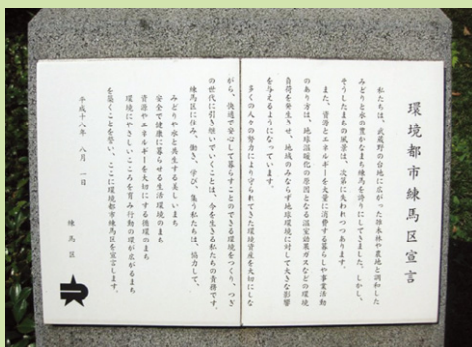 環境都市練馬区宣言
私たちは、武蔵野の台地に広がった雑木林や農地と調和した
みどりと水の豊かなまち練馬を誇りにしてきました。しかし、
そうしたまちの風景は、次第に失われつつあります。
また、資源とエネルギーを大量に消費する暮らしや事業活動
のあり方は、地球温暖化の原因となる温室効果ガスなどの環境
負荷を発生させ、地域のみならず地球環境に対して大きな影響
を与えるようになっています。
多くの人々の努力により守られてきた環境資産を大切にしな
がら、快適で安心して暮らすことのできる環境をつくり、つぎ
の世代に引き継いでいくことは、今を生きる私たちの責務です。
練馬区に住み、働き、学び、集う私たちは、協力して、
みどりや水と共生する美しいまち
安全で健康に暮らせる生活環境のまち
資源やエネルギーを大切にする循環のまち
環境にやさしいこころを育み行動の環が広がるまち
を築くことを誓い、ここに環境都市練馬区を宣言します。
平成十八年 月 一日
練馬区